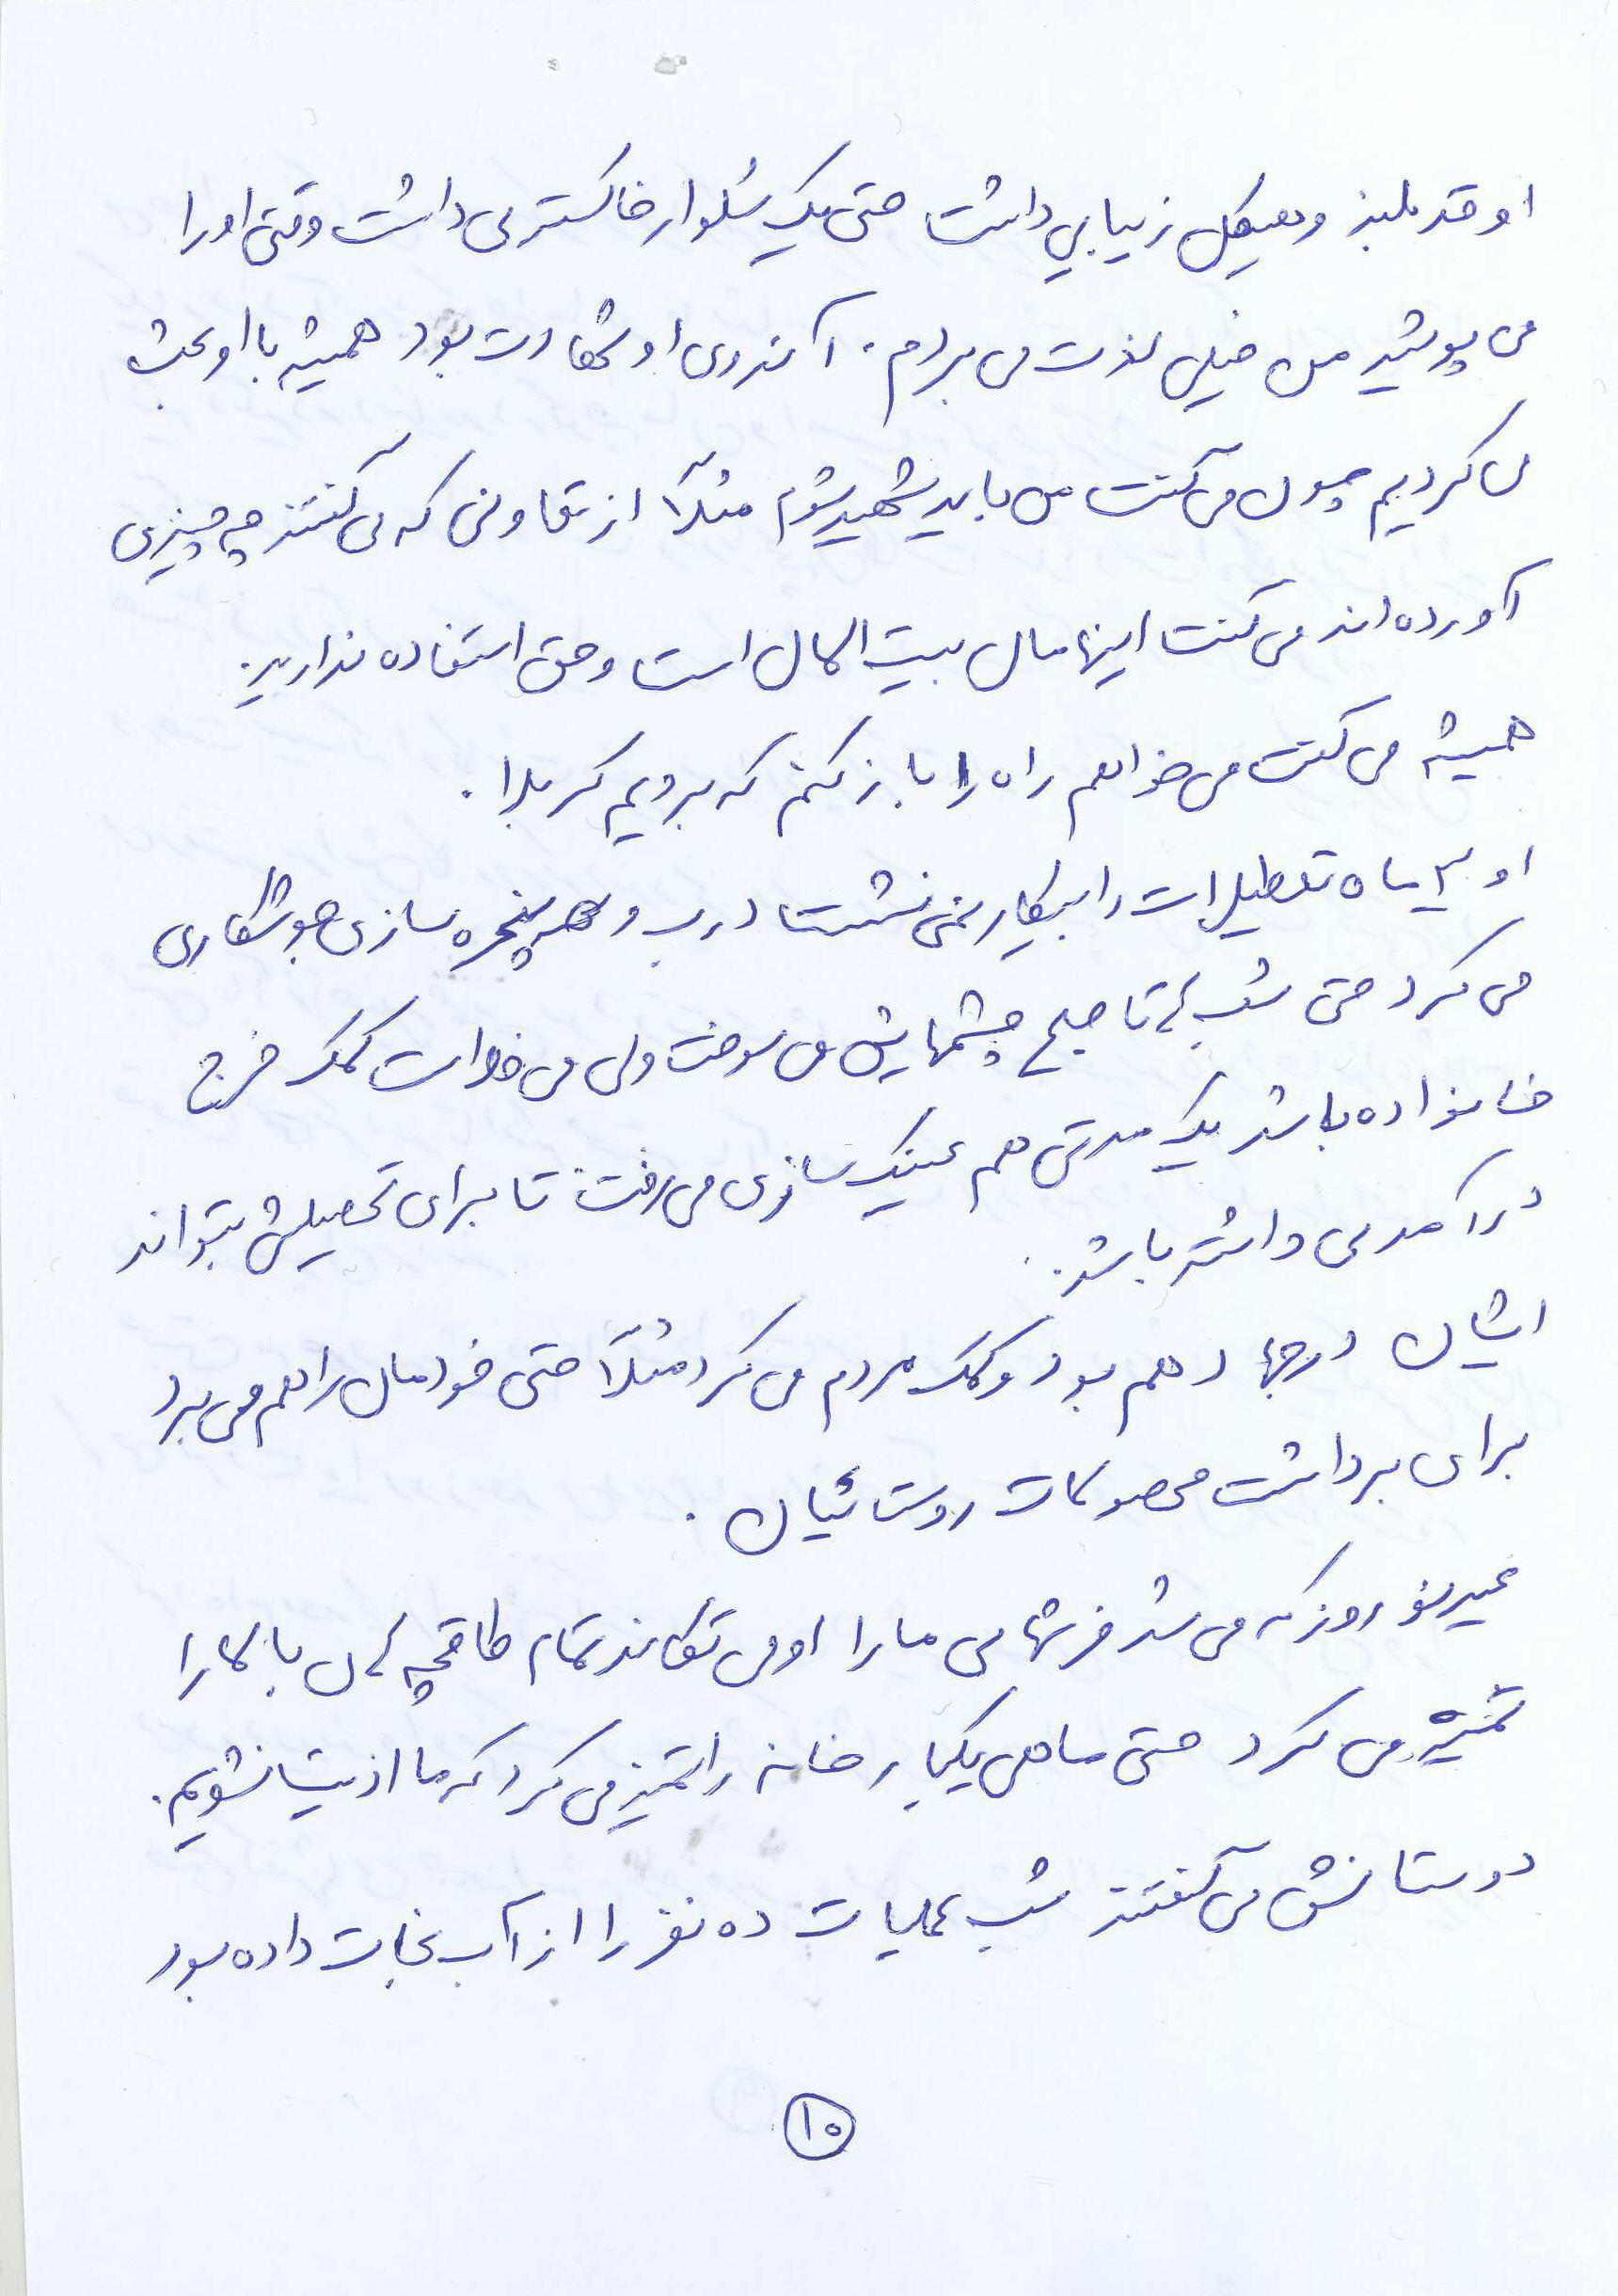 او قد بلند و هیکل زیبایی داشت حتی یک شلوار خاکستری داشت وقتی او را
می پوشید من خیلی لذت می بردم. آرزوی او شهادت بود همیشه با او بحث
می کردیم چون می گفت من باید شهید شوم مثلاً از تعاونی که می گفتند چه چیزی
آورده اند می گفت اینها مال بیت المال است و حق استفاده ندارید.
همیشه می گفت می خواهم راه را باز کنم که برویم کربلا.
او ۳ ماه تعطیلات را بیکار نمی نشست درب و پنجره سازی جوشکاری
می کرد حتی شب ها تا صبح چشمهایش می سوخت ولی می خواست کمک خرج
خانواده باشد یک مدتی هم عینک سازی می رفت تا برای تحصیلش بتواند
درآمدی داشته باشد.
ایشان در جهاد هم بود و کمک مردم می کرد مثلاً حتی خودمان را هم می برد
برای برداشت محصولات روستائیان.
عید نوروز که می شد فرشهای ما را او می تکاند تمام طاقچه های بالا را
تمیز می کرد حتی ماهی یکبار خانه را تمیز می کرد که ما اذیت نشویم.
دوستانش می گفتند شب عملیات ده نفر را از آب نجات داده بود
۱۰